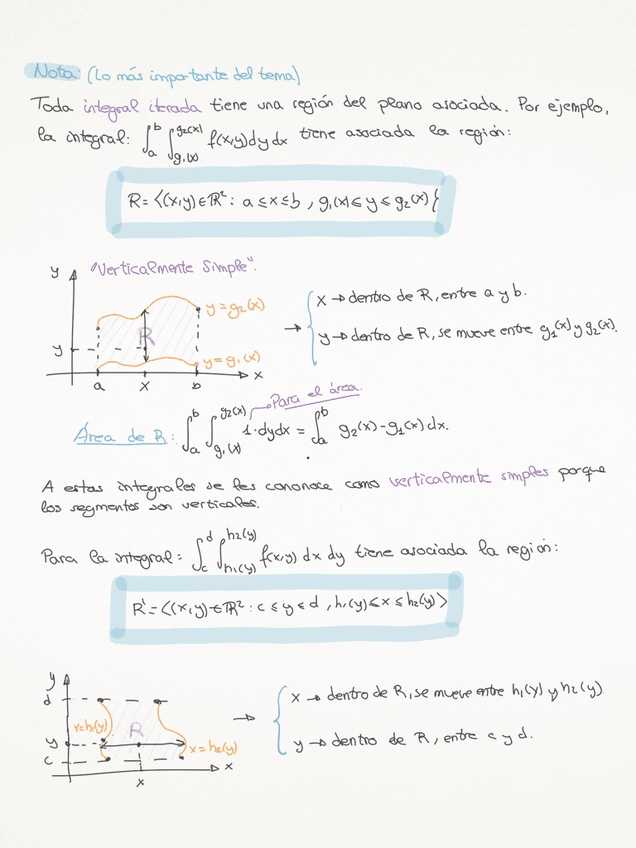 Nota: (Lo más importante del tema)
Toda integral iterada tiene una región del plano asociada. Por ejemplo,
la integral: ∫_a^b ∫_{g₁(x)}^{g₂(x)} f(x,y) dy dx tiene asociada la región:
R = {(x,y) ∈ ℝ² : a ≤ x ≤ b , g₁(x) ≤ y ≤ g₂(x)}
y "Verticalmente Simple".
y = g₂(x)
x → dentro de R, entre a y b.
R
→
y → dentro de R, se mueve entre g₁(x) y g₂(x).
y
y = g₁(x)
a x b x
Para el área.
Área de R: ∫_a^b ∫_{g₁(x)}^{g₂(x)} 1·dydx = ∫_a^b g₂(x) - g₁(x) dx.
A estas integrales se les cononoce como verticalmente simples porque
los segmentos son verticales.
Para la integral: ∫_c^d ∫_{h₁(y)}^{h₂(y)} f(x,y) dx dy tiene asociada la región:
R' = {(x,y) ∈ ℝ² : c ≤ y ≤ d , h₁(y) ≤ x ≤ h₂(y)}
y
d
x → dentro de R, se mueve entre h₁(y) y h₂(y).
x = h₁(y) R
→
y x = h₂(y)
y → dentro de R, entre c y d.
c
x
x